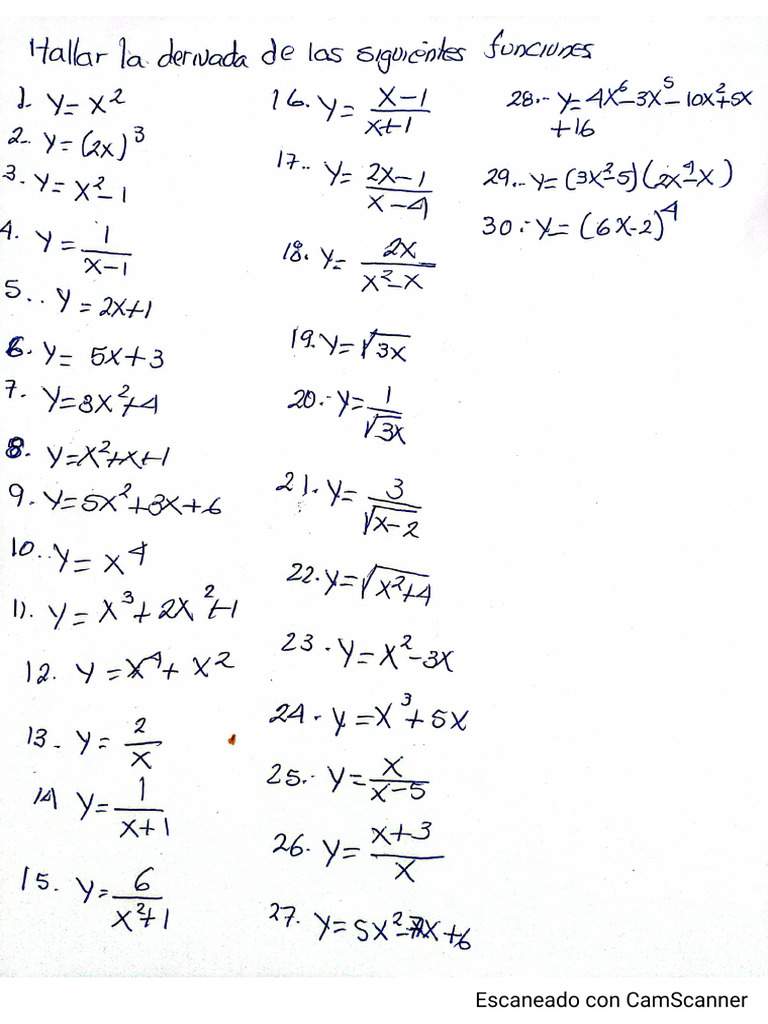 Hallar la derivada de las siguientes funciones
1. y = x²
2.. y = (2x)³
3. y = x² - 1
4. y = 1/(x-1)
5.. y = 2x+1
6. y = 5x+3
7. y = 3x²+4
8. y = x²+x+1
9. y = 5x²+3x+6
10.. y = x⁴
11. y = x³+2x²-1
12. y = x⁴+x²
13- y = 2/x
14 y = 1/(x+1)
15. y = 6/(x²+1)
16. y = (x-1)/(x+1)
17.. y = (2x-1)/(x-4)
18. y = 2x/(x²-x)
19. y = √3x
20.- y = 1/√3x
21. y = 3/√x-2
22. y = √x²+4
23. y = x²-3x
24. y = x³+5x
25.- y = x/(x-5)
26. y = (x+3)/x
27. y = 5x²-7x+6
28.- y = 4x⁶-3x⁵-10x²+5x
+16
29.. y = (3x²-5)(2x⁴-x)
30.- y = (6x-2)⁴
Escaneado con CamScanner